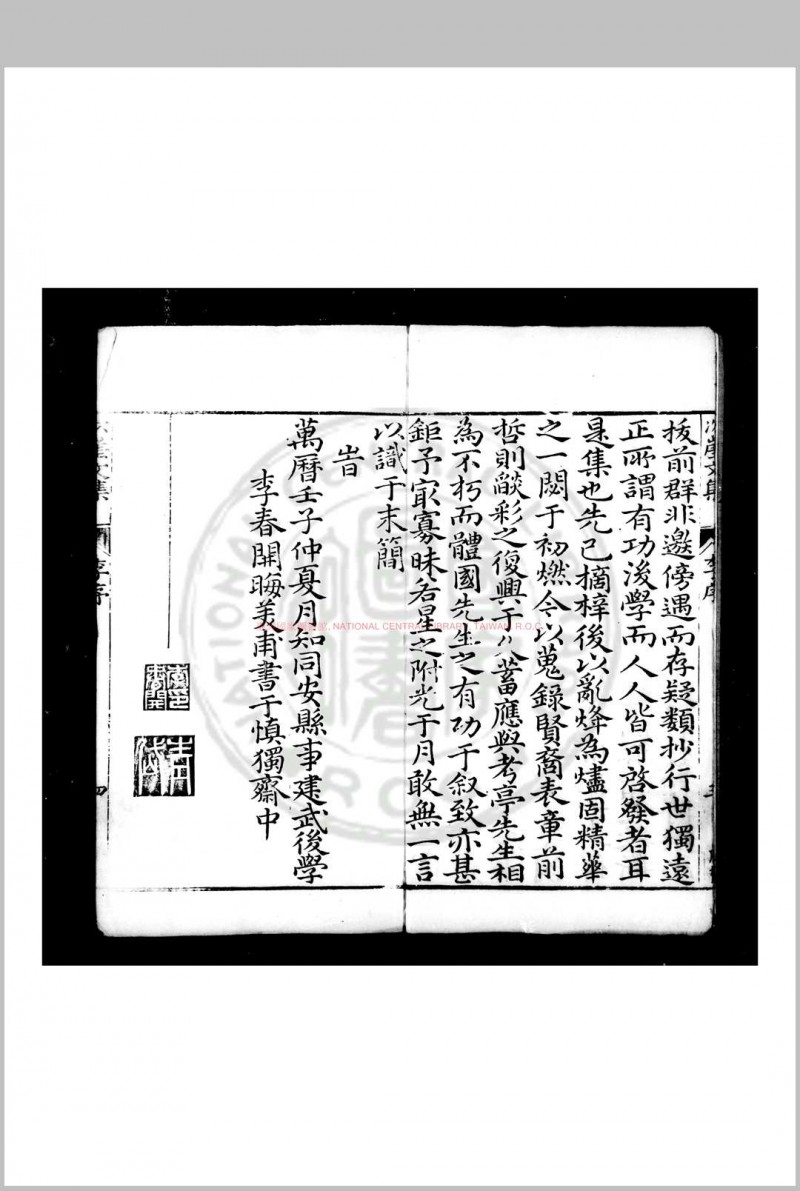 拔前群非邈傍遇而存疑類抄行世獨遠
正所謂有功後學而人人皆可啓發者耳
是集也先已摘梓後以亂烽為燼固精華
之一闕于初燃今以蒐錄賢裔表章前
哲則燄彩之復興于蓄應與考亭先生相
為不朽而體國先生之有功于叙致亦甚
鉅予寂寡昧若星之附光于月敢無一言
以識于末簡
旹
萬曆壬子仲夏月知同安縣事建武後學
李春開晦美甫書于慎獨齋中
李序
文集
四
NATIONAL CENTRAL LIBRARY, TAIWAN, R.O.C